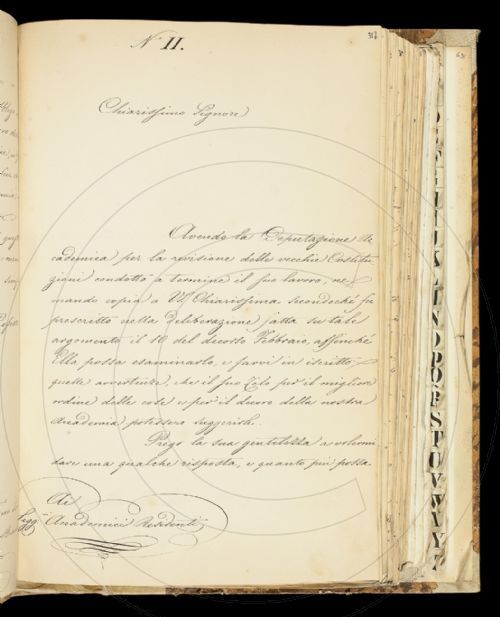 N. II.
317
Chiarissimo Signore
Avendo la Deputazione Ac
cademica per la revisione delle vecchie Costitu
zioni condotto a termine il suo lavoro, ne
mando copia a V. S. Chiarissima secondochè fu
prescritto nella deliberazione fatta su tale
argomento il 10 del decorso Febbraio, affinchè
Ella possa esaminarlo, e farvi in iscritto
quelle avvertenze, che il suo Zelo per il migliore
ordine delle cose e per il decoro della nostra
Accademia potessero suggerirle.
Prego la sua gentilezza a volermi
dare una qualche risposta, e quanto più possa
Ai
Sigg. Accademici Residenti